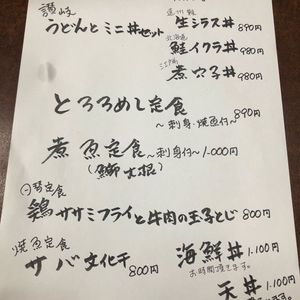 讃岐
うどんとミニ丼セット
遠州灘
生シラス丼 890円
北海道
鮭イクラ丼 980円
江戸前
煮穴子丼 980円
とろろめし定食 890円
～刺身・焼魚付～
煮魚定食～刺身付～1.000円
(鰤大根)
日替定食
鶏ササミフライと牛肉の玉子とじ 800円
焼魚定食
サバ文化干 800円
海鮮丼 1.100円
お時間頂きます。
天丼 1.100円